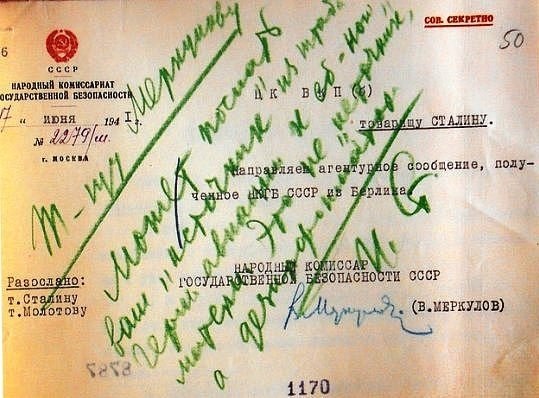 СОВ. СЕКРЕТНО
50
6
СССР
НАРОДНЫЙ КОМИССАРИАТ
ОСУДАРСТВЕННОЙ БЕЗОПАСНОСТИ
17 " июня 1941 г.
№ 2279/м
г. МОСКВА
Ц К В К П (б)
товарищу СТАЛИНУ.
Направляем агентурное сообщение, полу-
ченное НКГБ СССР из Берлина.
НАРОДНЫЙ КОМИССАР
ГОСУДАРСТВЕННОЙ БЕЗОПАСНОСТИ СССР
(В.МЕРКУЛОВ)
Разослано:
т.Сталину
т.Молотову
1170
Т-щу Меркулову
Может послать
ваш "источник" из штаба
герм. авиации к еб-ной
матери. Это не "источник",
а дезинформатор.
И. Ст.